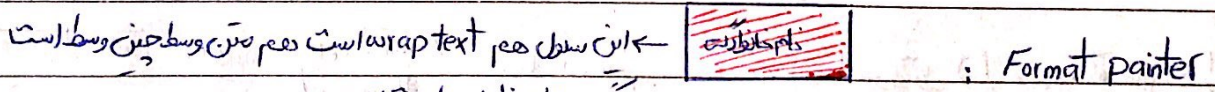 Format painter : نام خانوادگی ← این سلول هم wrap text است و هم متن وسط چین وسط است